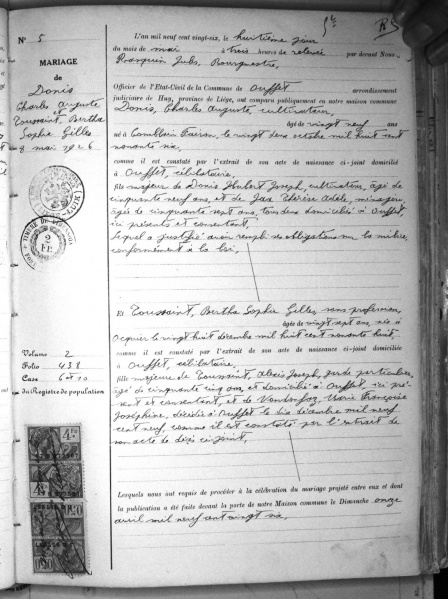 N° 5
MARIAGE
de
Donis
Charles Auguste
Toussaint, Bertha
Sophie Gilles
8 mai 1926
2
Fr.
Volume 2
Folo 438
Case 6 et 10
du Registre de population
L'an mil neuf cent vingt-six, le huitième jour
du mois de mai à trois heures de relevée par devant Nous
Jules, Bourgmestre,
Officier de l'Etat-Civil de la Commune de Ouffet arrondissement
judiciaire de Huy, province de Liége, ont comparu publiquement en notre maison commune
Donis, Charles Auguste, cultivateur,
âgé de vingt neuf ans
né à Comblain Fairon, le vingt deux octobre mil huit cent
nonante six,
comme il est constaté par l'extrait de son acte de naissance ci-joint domicilié
à Ouffet, célibataire,
fils majeur de Donis Hubert Joseph, cultivateur, âgé de
cinquante neuf ans, et de Thérèse Adèle, ménagère,
âgée de cinquante sept ans, tous deux domiciliés à Ouffet,
ici présents et consentant,
lequel a justifié avoir rempli ses obligations sur la milice
conformément à la loi,
Et Toussaint, Bertha Sophie Gilles, sans profession,
âgée de vingt sept ans, née à
Ocquier le vingt huit décembre mil huit cent nonante huit
comme il est constaté par l'extrait de son acte de naissance ci-joint domiciliée
à Ouffet, célibataire,
fille majeure de Toussaint, Alexis Joseph, garde particulier,
âgé de cinquante cinq ans, et domicilié à Ouffet, ici pré-
sent et consentant, et de Marie Françoise
Joséphine, décédée à Ouffet le dix décembre mil neuf
cent neuf, comme il est constaté par l'extrait de
son acte de décès ci-joint,
Lesquels nous ont requis de procéder à la célébration du mariage projeté entre eux et dont
la publication a été faite devant la porte de notre Maison commune le Dimanche onze
avril mil neuf cent vingt six,